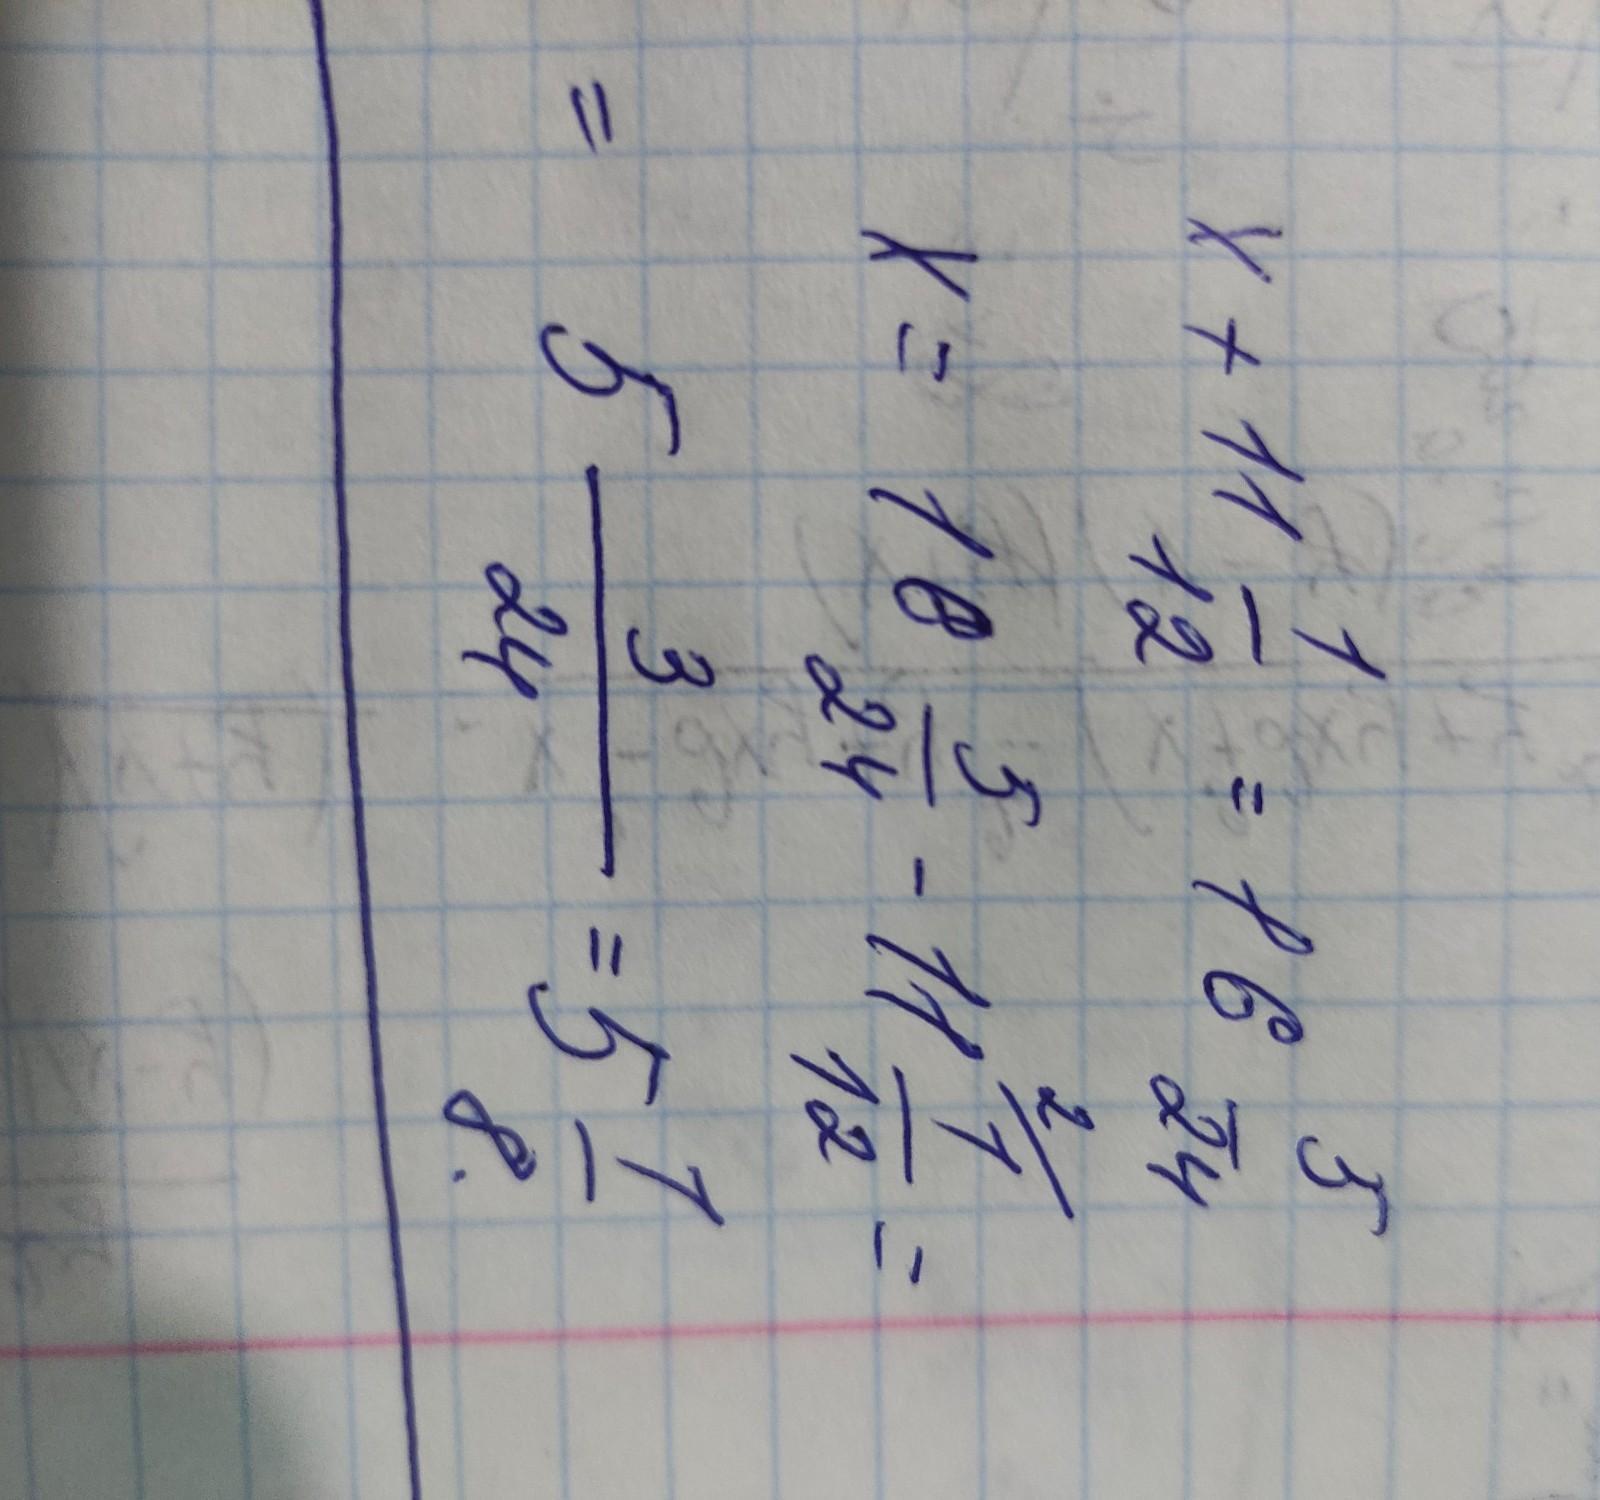 x + 11 1/12 = 16 5/24
x = 16 5/24 - 11 1/12 /2 =
= 5 3/24 = 5 1/8.